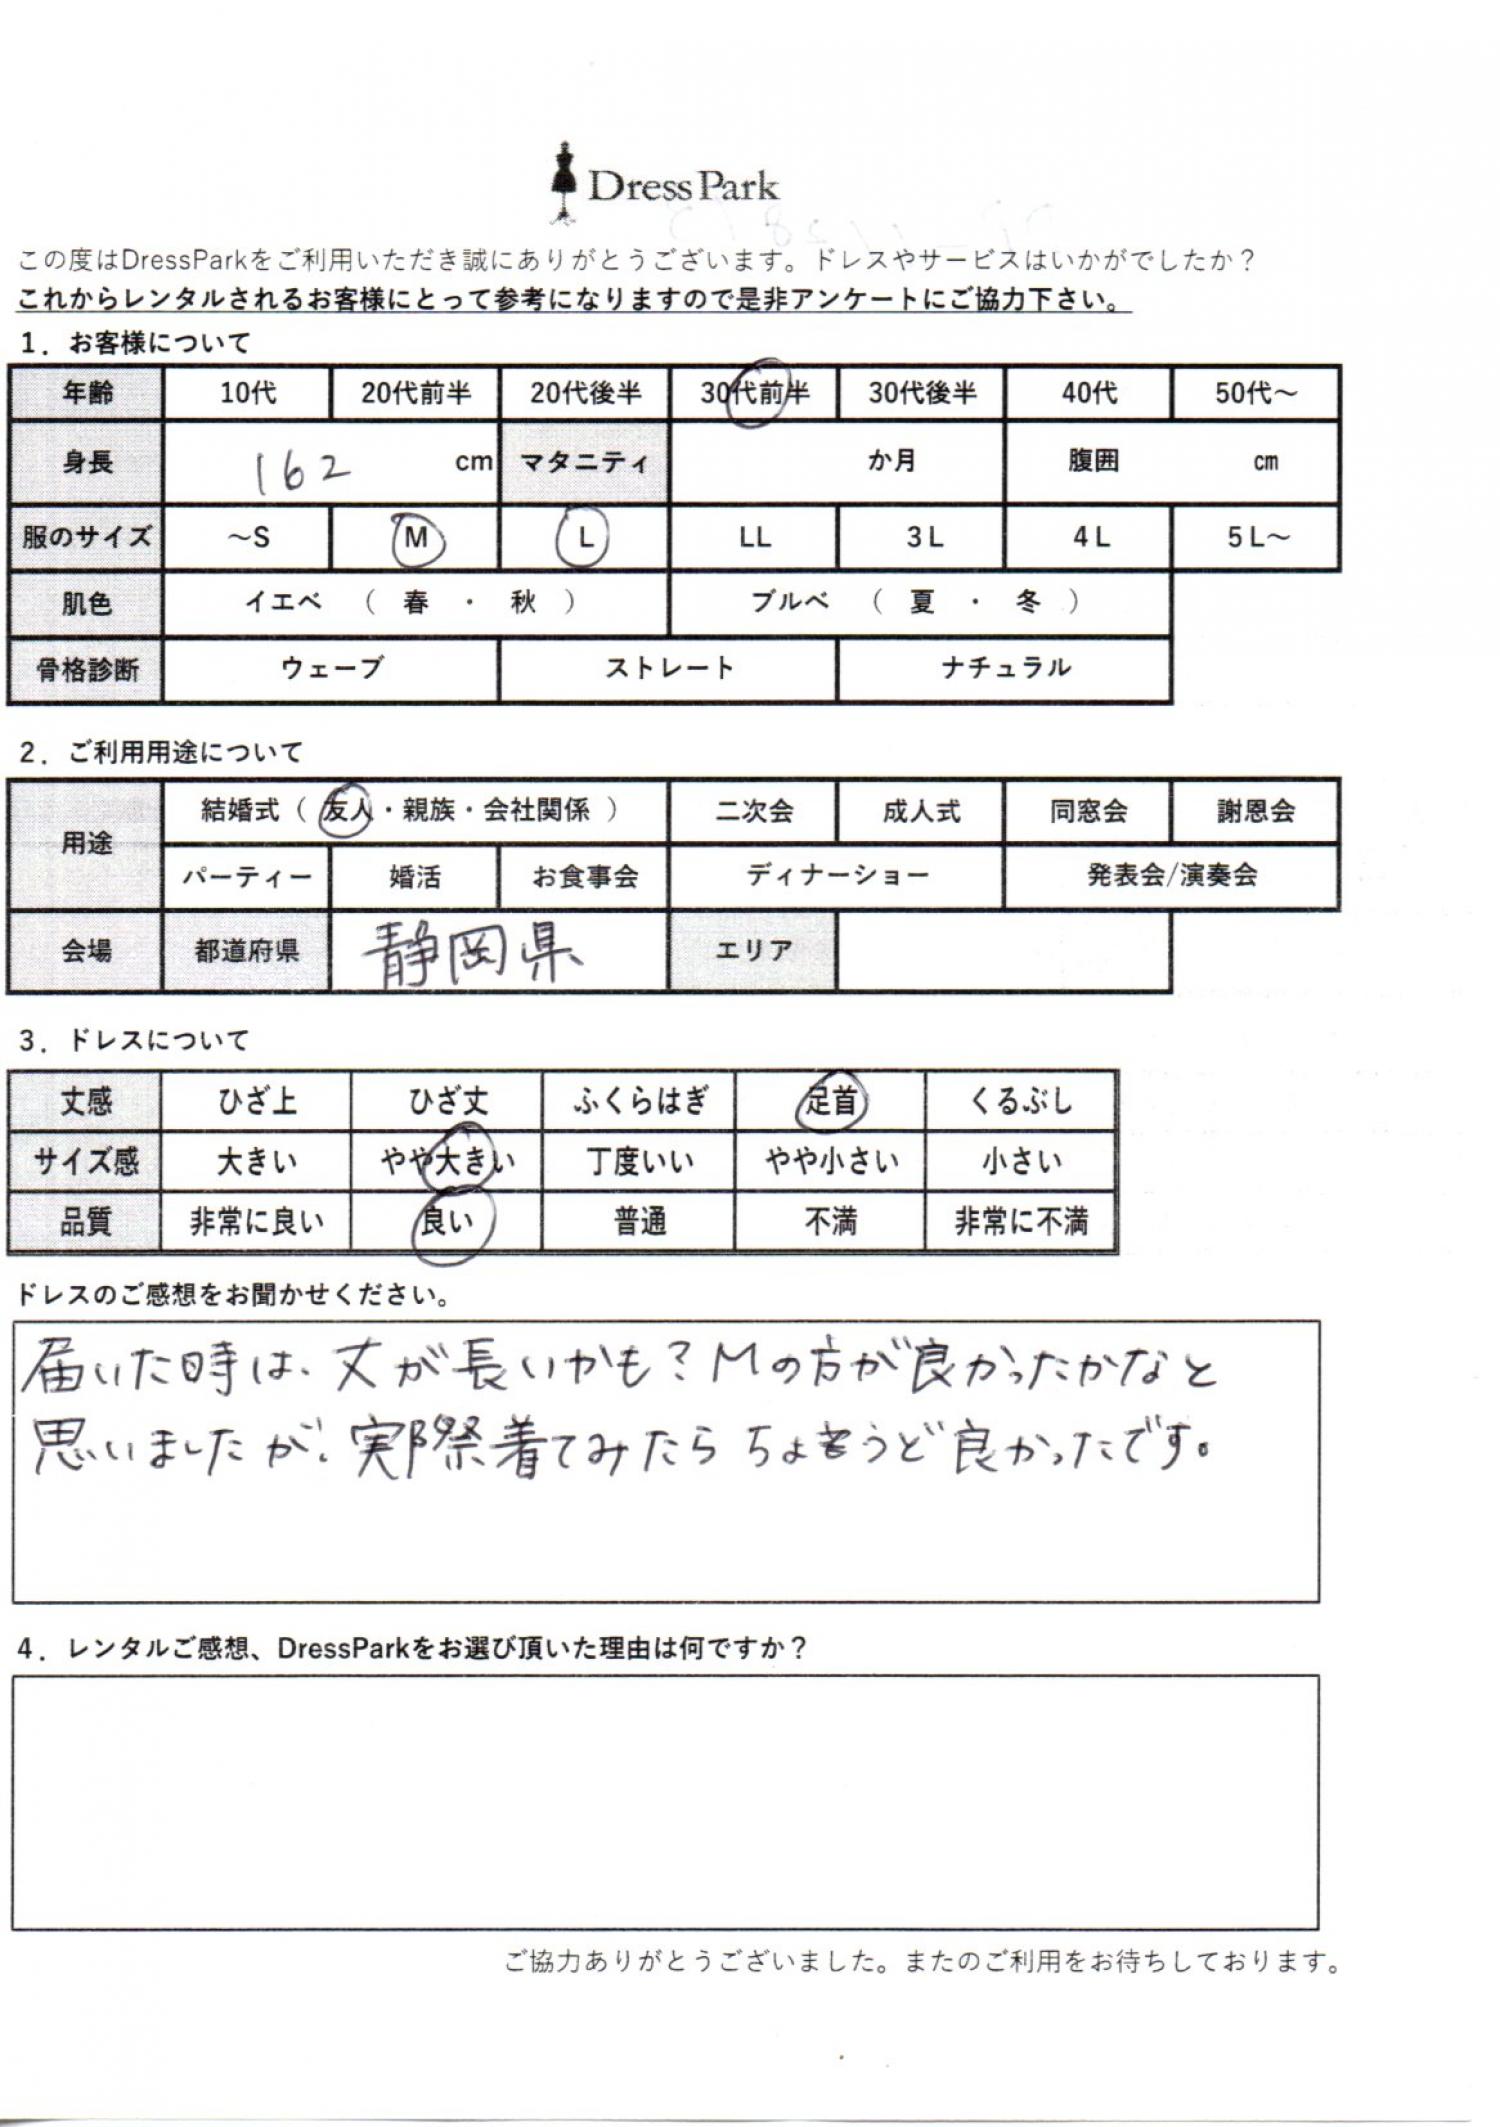 Dress Park
この度はDressParkをご利用いただき誠にありがとうございます。ドレスやサービスはいかがでしたか？
これからレンタルされるお客様にとって参考になりますので是非アンケートにご協力下さい。
1．お客様について
年齢 10代 20代前半 20代後半 30代前半 30代後半 40代 50代～
身長 162 cm マタニティ か月 腹囲 cm
服のサイズ ～S M L LL 3L 4L 5L～
肌色 イエベ （ 春 ・ 秋 ） ブルベ （ 夏 ・ 冬 ）
骨格診断 ウェーブ ストレート ナチュラル
2．ご利用用途について
用途 結婚式（ 友人・親族・会社関係 ） 二次会 成人式 同窓会 謝恩会
パーティー 婚活 お食事会 ディナーショー 発表会/演奏会
会場 都道府県 静岡県 エリア
3．ドレスについて
丈感 ひざ上 ひざ丈 ふくらはぎ 足首 くるぶし
サイズ感 大きい やや大きい 丁度いい やや小さい 小さい
品質 非常に良い 良い 普通 不満 非常に不満
ドレスのご感想をお聞かせください。
届いた時は、丈が長いかも？Mの方が良かったかなと
思いましたが、実際着てみたらちょうど良かったです。
4．レンタルご感想、DressParkをお選び頂いた理由は何ですか？
ご協力ありがとうございました。またのご利用をお待ちしております。